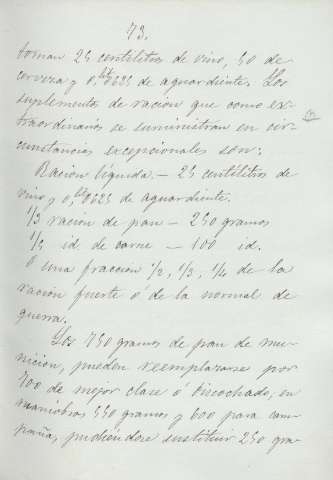 73.
toman 25 centilitros de vino, 50 de
cerveza y 0,lit0625 de aguardiente. Los
suplementos de racion que como ex-
traordinarios se suministran en cir-
cunstancias excepcionales son:
Racion líquida. — 25 centilitros de
vino y 0,lit0625 de aguardiente.
1/3 racion de pan — 250 gramos
1/5 id. de carne — 100 id.
O una fraccion 1/2, 1/3, 1/4 de la
racion fuerte ó de la normal de
guerra.
Los 750 gramos de pan de mu-
nicion, pueden reemplazarse por
700 de mejor clase ó biscochado, en
maniobras 550 gramos y 600 para cam-
paña, pudiéndose sustituir 250 gra-